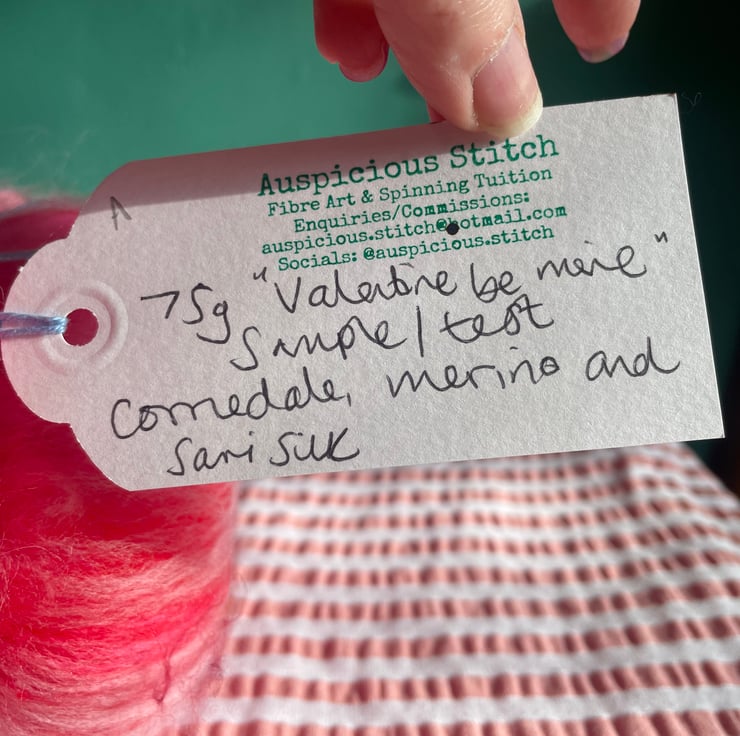 A
Auspicious Stitch
Fibre Art & Spinning Tuition
Enquiries/Commissions:
auspicious.stitch@hotmail.com
Socials: @auspicious.stitch
75g "Valentine be mine"
Sample/test
Corriedale, merino and
Sari Silk